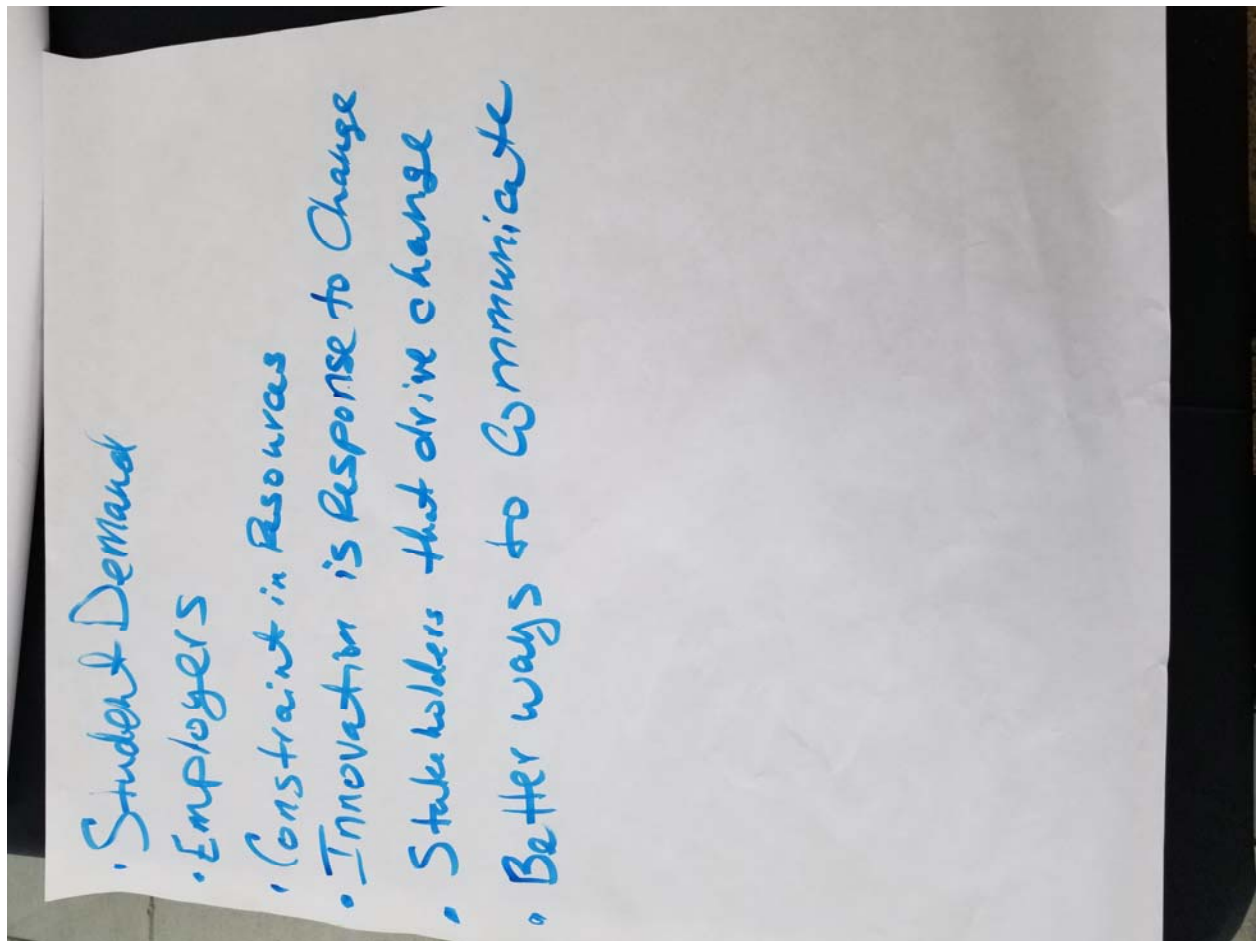 · Student Demand
· Employers
· Constraint in Resources
· Innovation is Response to Change
· Stakeholders that drive change
· Better ways to Communicate